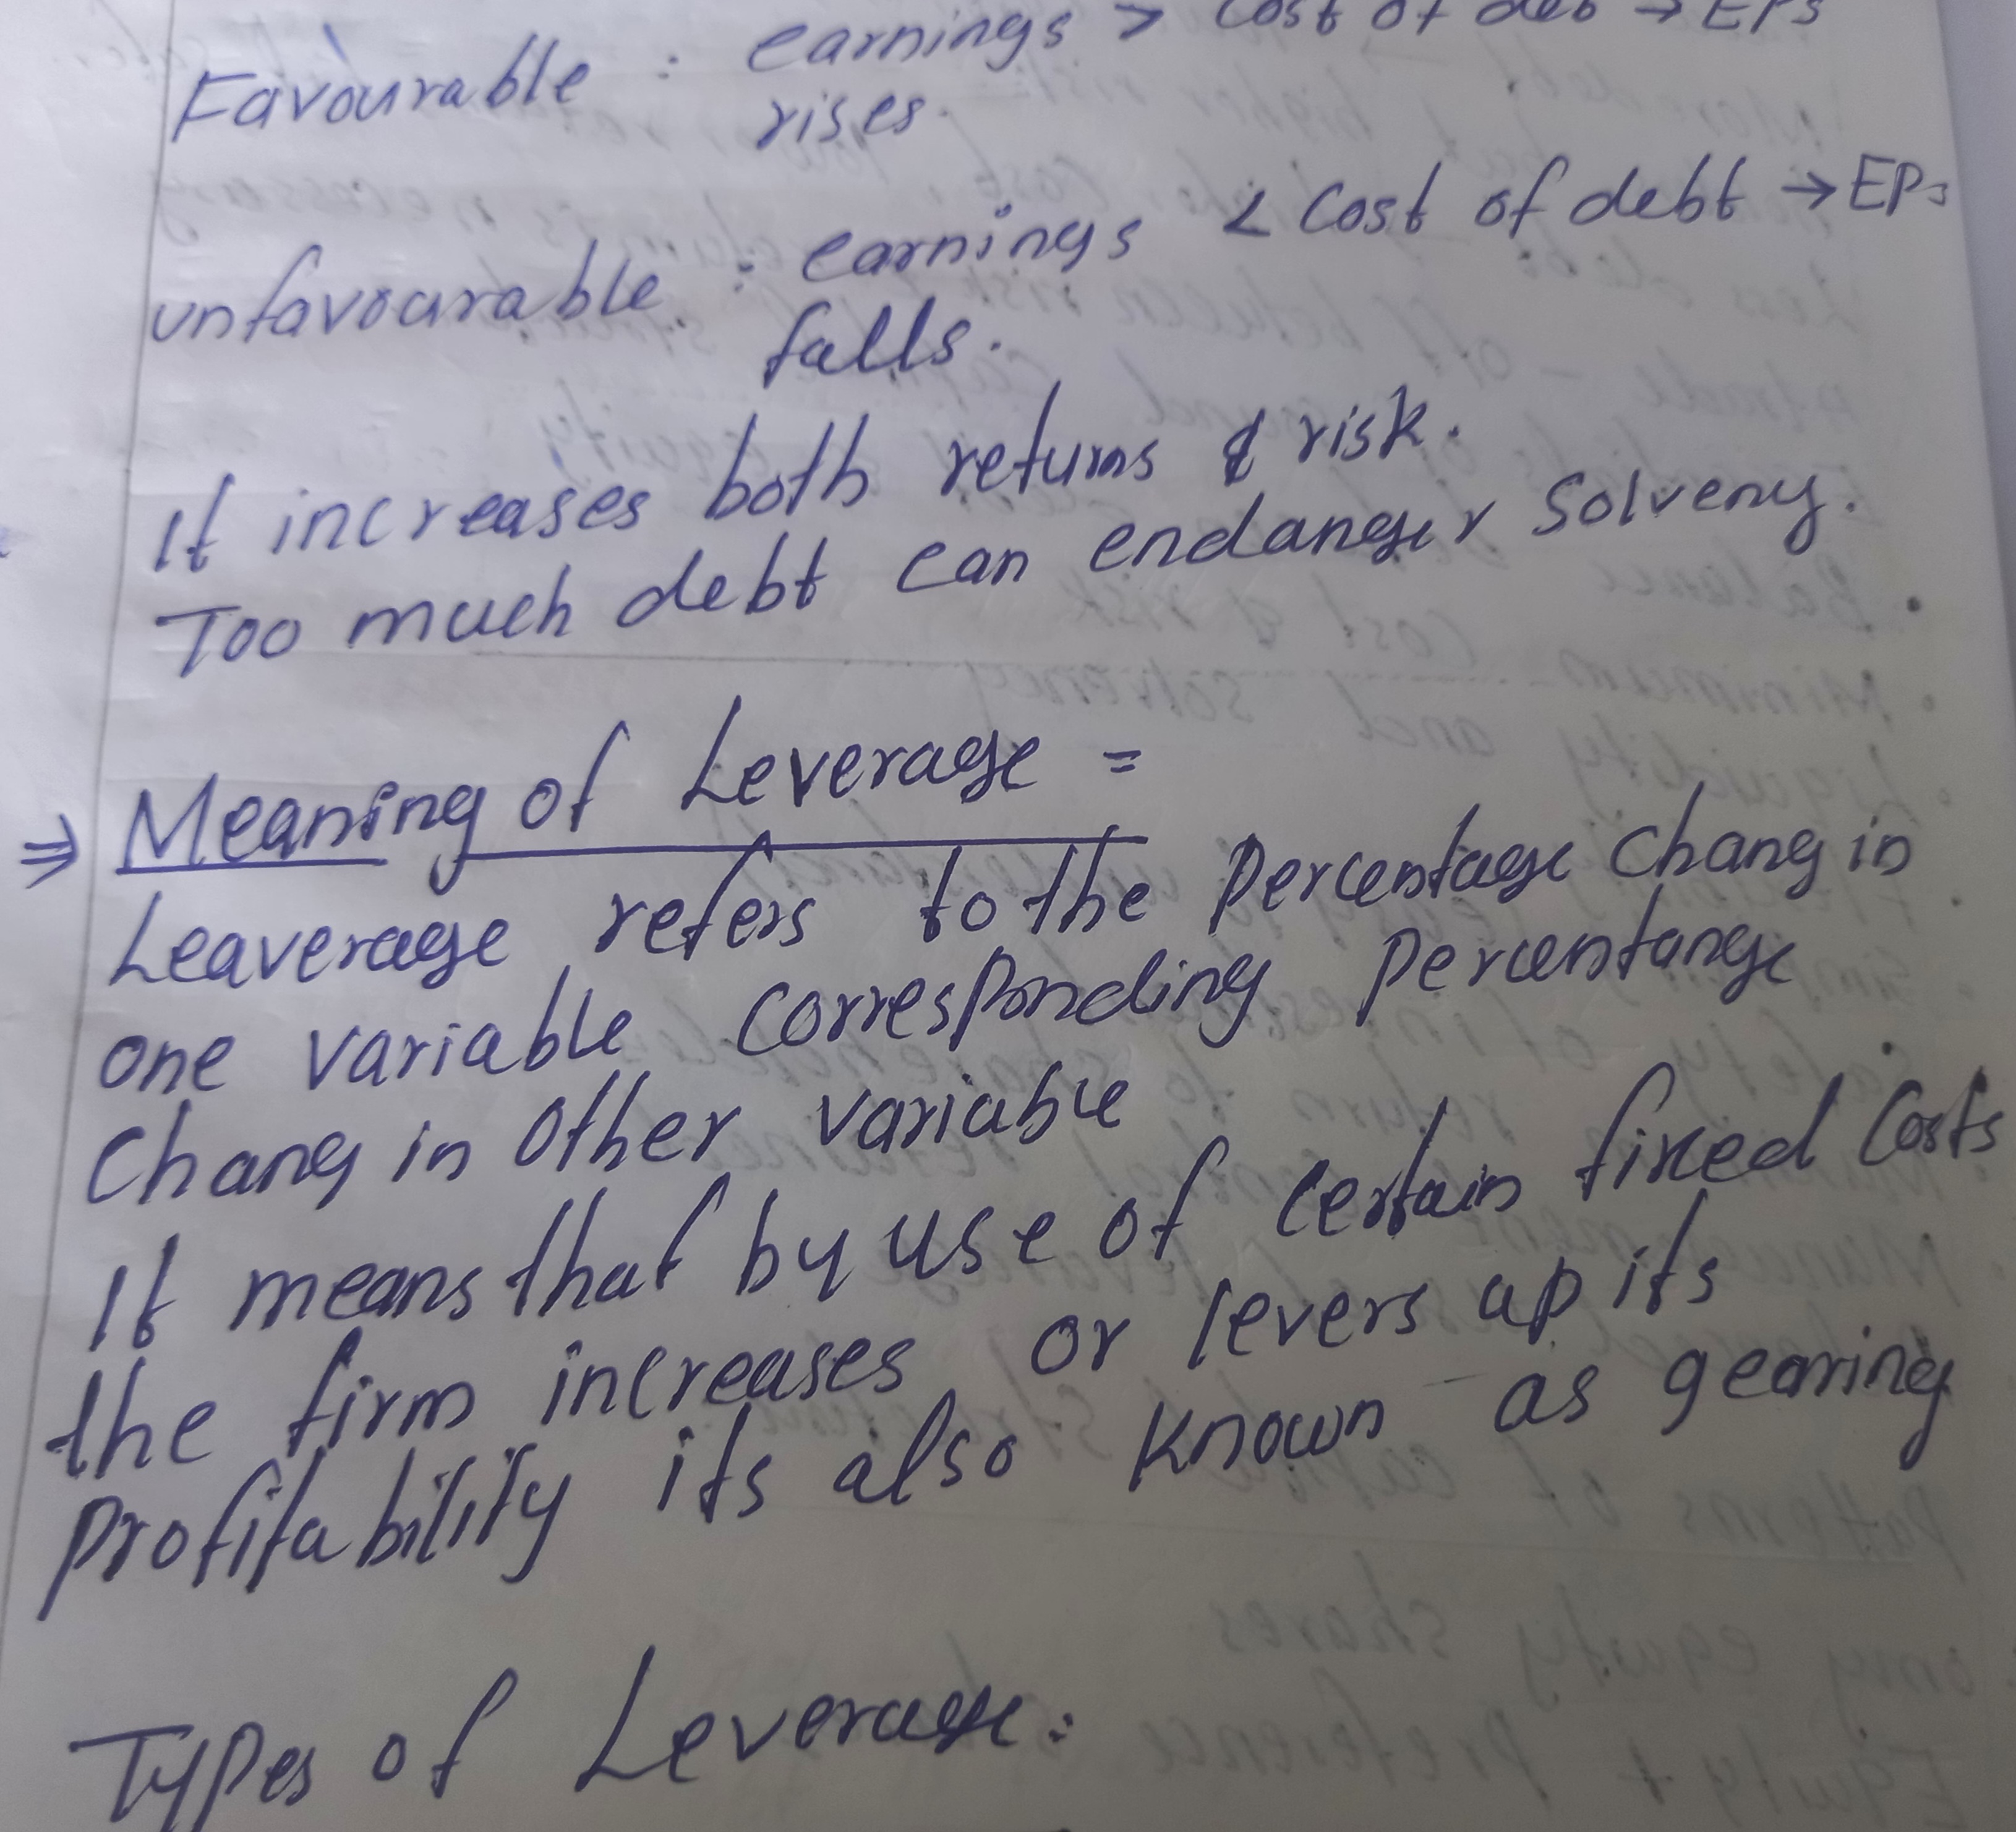 Favourable : earnings > cost of deb → EPS
rises.
unfavourable : earnings < cost of debt → EPs
falls.
It increases both returns & risk.
Too much debt can endanger solveny.
⇒ Meaning of Leverage =
Leaverage refers to the percentage chang in
one variable corresponding percentange
chang in other variable
It means that by use of certain fixed costs
the firm increases or levers up its
profitability its also known as gearing
Types of Leverage: